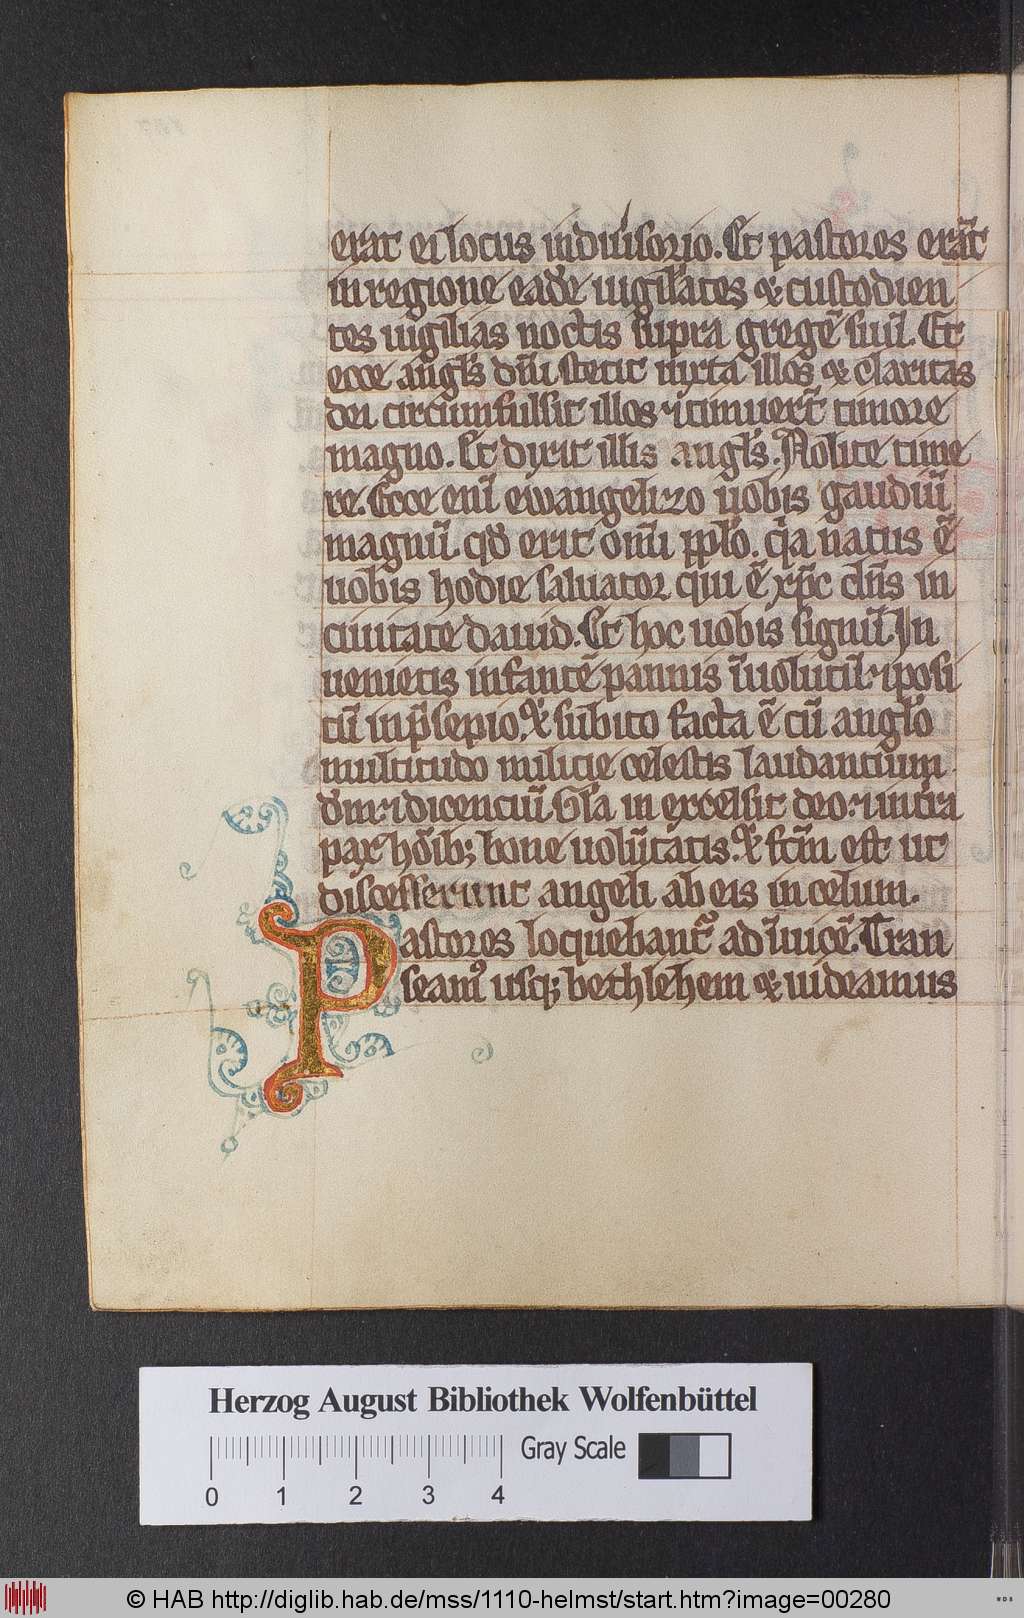 erat ei locus indiuisorio. Et pastores erāt
in regione eadē uigilātes & custodien
tes uigilias noctis supra gregē suū. Et
ecce angls dnī stetit iuxta illos & claritas
dei circumfulsit illos ⁊ timuert̄ timore
magno. Et dixit illis angls. Nolite time
re. Ecce enī ewangelizo uobis gaudiū
magnū. qd̄ erit omī pplo. qa natus ē
uobis hodie saluator qui ē xp̄c dn̄s in
ciuitate dauid. Et hoc uobis signū. In
uenietis infantē pannis īuolutū. ⁊ posi
tū in p̄sepio. & subito facta ē cū anglo
multitudo milicie celestis laudantium
dm̄. ⁊ dicentiū Gla in excelsit deo. ⁊ intra
pax hōib; bone uolūtatis. & fctm̄ est ut
discesserunt angeli ab eis in celum.
Pastores loquebant᷑ ad īuicē. Tran
seamꝰ usq; bethlehem & uideamus
Herzog August Bibliothek Wolfenbüttel
Gray Scale
0 1 2 3 4
© HAB http://diglib.hab.de/mss/1110-helmst/start.htm?image=00280